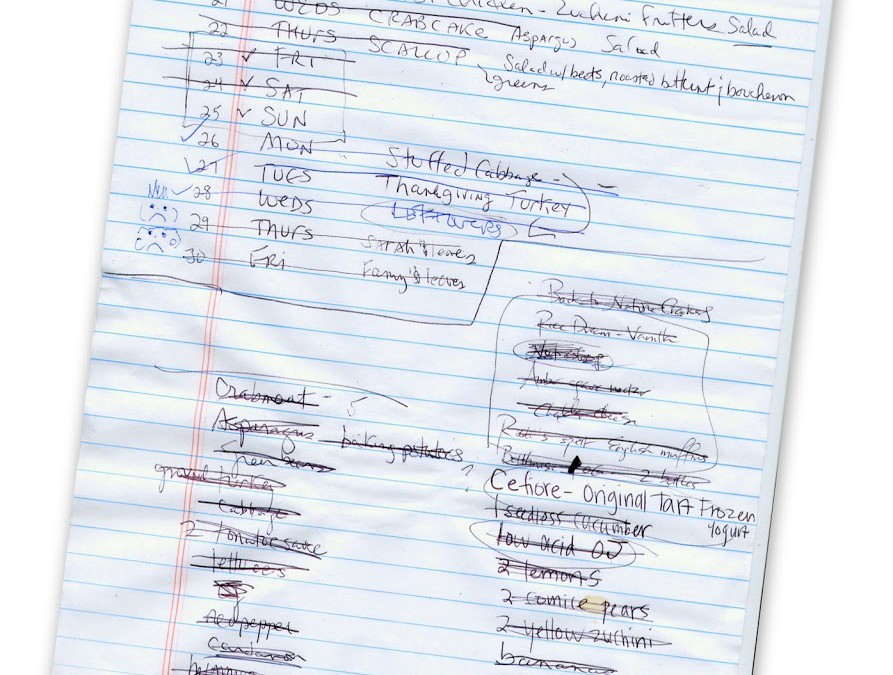 21 WEDS CRABCAKE Asparagus Salad
Chicken - Zuchini Fritters Salad
22 THURS SCALLOP Salad w/ beets, roasted butternut, boucheron
greens
23 ✓ FRI
24 ✓ SAT
25 ✓ SUN
26 MON Stuffed Cabbage
27 TUES Thanksgiving Turkey
28 WEDS Leftovers
29 THURS Sarah leaves
30 Fri Fanny leaves
Back to Nature
Rice Dream - Vanilla
English muffins
2
Crabmeat - 5
Asparagus
baking potatoes
green beans
ground turkey
cabbage
2 tomatoe sauce
lettuces
Red pepper
?
Cefiore - Original Tart Frozen
Yogurt
1 seedless cucumber
low acid OJ
2 lemons
2 comice pears
2 yellow zuchini
bananas